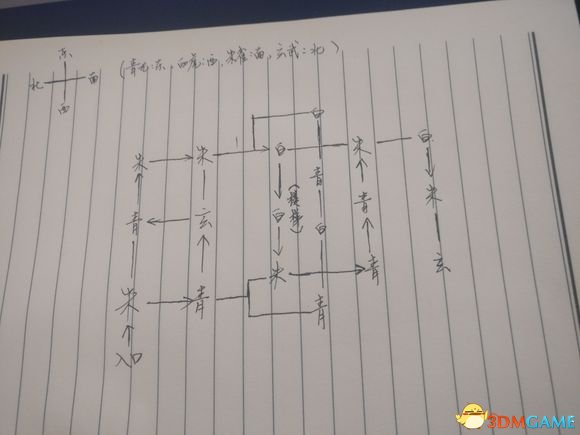 东
北 南
西
(青龙:东,白虎:西,朱雀:南,玄武:北)
白
朱 朱 1 白 朱 白
青 朱
青 玄 白 (楼梯) 白 青
朱 青 玄
朱 青 青
入口
3DMGAME